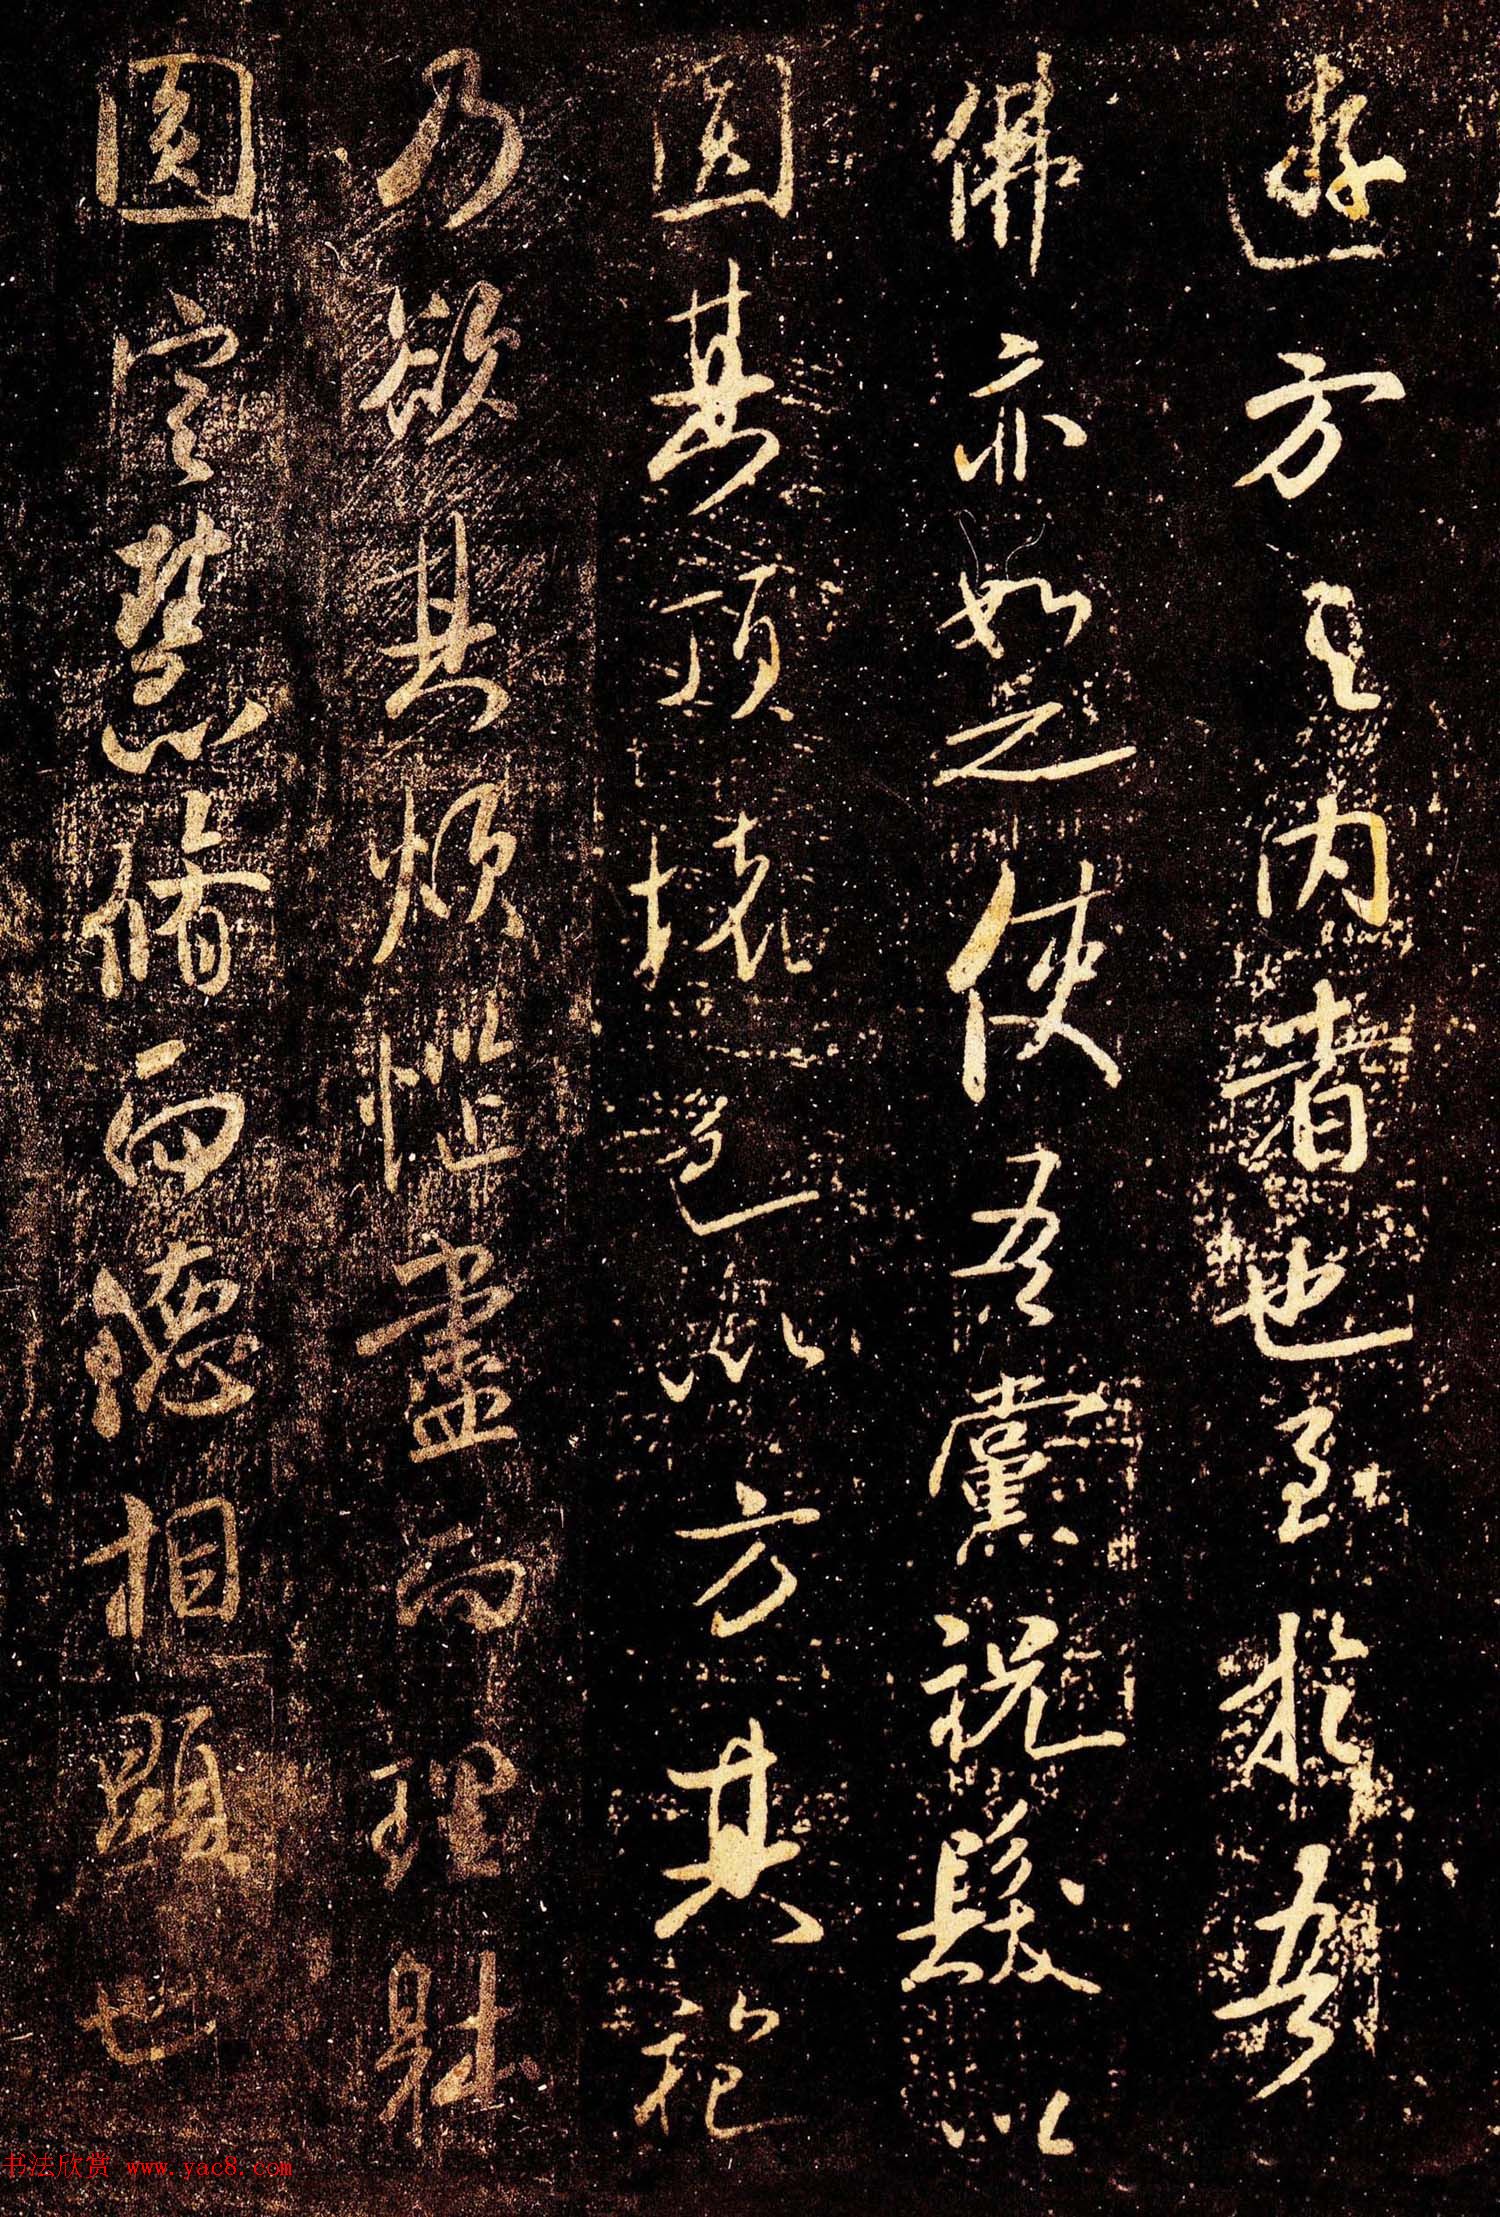 遊方之内者也至於吾
佛亦如之使吾黨祝髮以
圓其頂壞色以方其袍
乃欲其煩惱盡而理體
圓定慧脩而德相顯也
书法欣赏 www.yac8.com